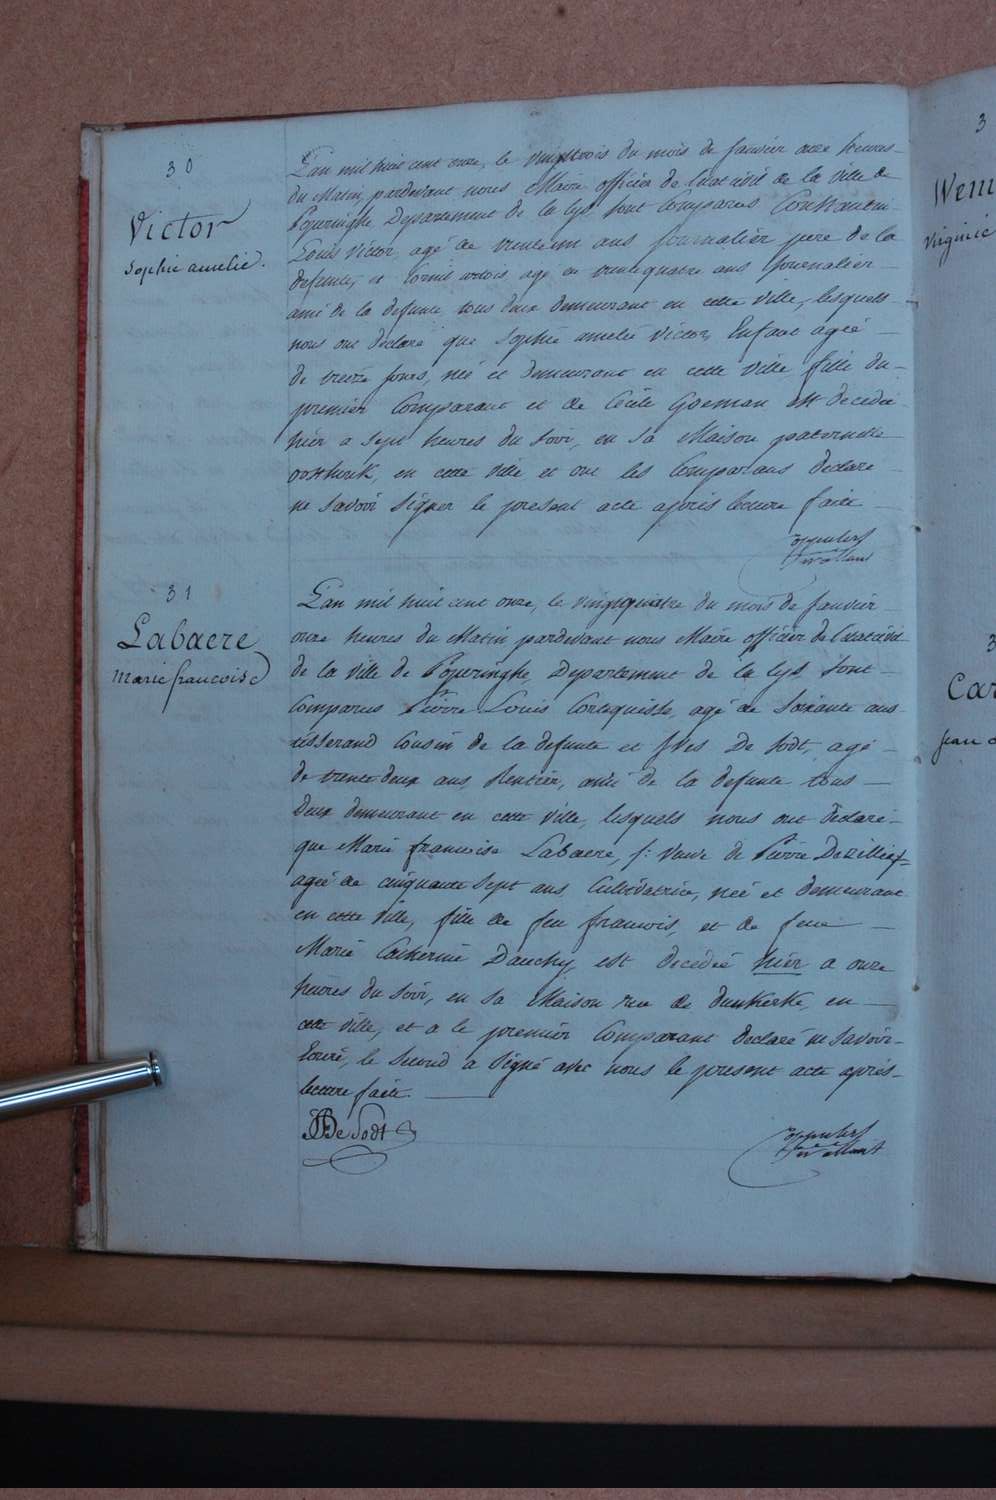 30
Victor
Sophie amelie.
L'an mil huit cent onze, le vingttrois du mois de Janvier onze heures
du Matin, pardevant nous Maire officier de l'etat civil de la ville de
Poperinghe Departement de la Lys sont Comparus Constantin
Louis Victor, agé de trenteun ans journalier pere de la
defunte, et Cornil artois agé de trentequatre ans Journalier
ami de la defunte, tous deux demeurant en cette Ville, lesquels
nous ont declaré que Sophie amelie Victor, Enfant agée
de treize jours, née et demeurant en cette ville fille du
premier Comparant et de Cecile Goeman est decedée
hier a sept heures du soir, en sa Maison paternelle
en cette ville et ont les Comparans declare
ne savoir signer le present acte après lecture faite
31
Labaere
Marie francoise
L'an mil huit cent onze, le vingtquatre du mois de Janvier
onze heures du Matin pardevant nous Maire officier de l'etat civil
de la ville de Poperinghe, Departement de la Lys sont
Comparus Pierre Louis Cortequisse, agé de Soixante ans
tisserand Cousin de la defunte et Yves De Sodt, agé
de trente deux ans, Rentier, ami de la defunte tous
Deux demeurant en cette Ville, lesquels nous ont declaré
que Marie francoise Labaere, f: Veuve de Pierre Dezillie
agée de cinquante sept ans Cultivatrice, née et demeurant
en cette Ville, fille de feu francois, et de feue
Marie Catherine Dauchy, est decedée hier a onze
heures du soir, en sa Maison rue de dunkerke, en
cette ville, et a le premier Comparant declaré ne savoir
Ecrire, le second a signé avec nous le present acte après
lecture faite.
De Sodt
3
Wem
Virginie
3
Car
Jean